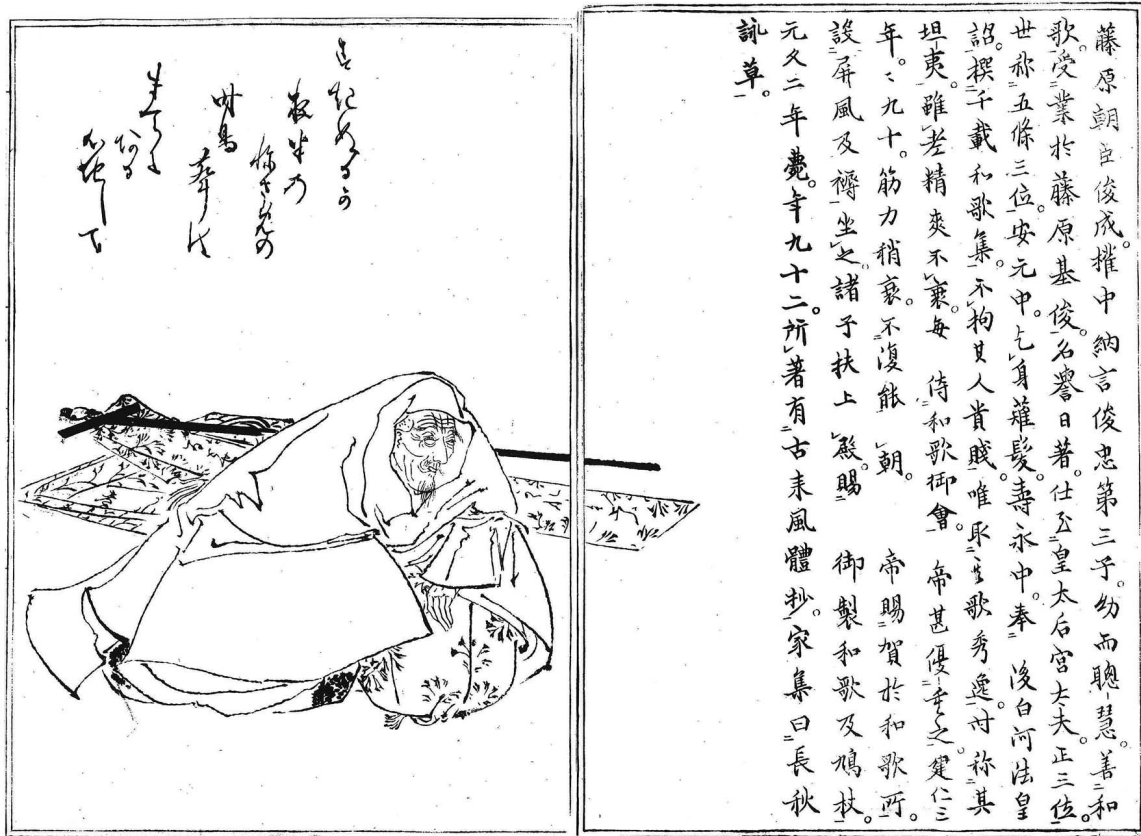 藤原朝臣俊成。權中納言俊忠第三子。幼而聰慧。善和
歌。受業於藤原基俊。名譽日著。仕至皇太后宮大夫。正三位。
世称五條三位。安元中。乞身薙髮。壽永中。奉 後白河法皇
詔。撰千載和歌集。不拘其人貴賤。唯取其歌秀逸。时称其
坦夷。雖老精爽不衰。每 侍和歌御會。 帝甚優重之。建仁三
年。〻九十。筋力稍衰。不復能朝。 帝賜賀於和歌所。
設屏風及褥坐之。諸子扶上殿。賜 御製和歌及鳩杖。
元久二年薨。年九十二。所著有古来風體抄。家集曰長秋
詠草。
すきぬるか
夜半の
ねさめの
时鳥
聲は
まくらに
ある
心地して